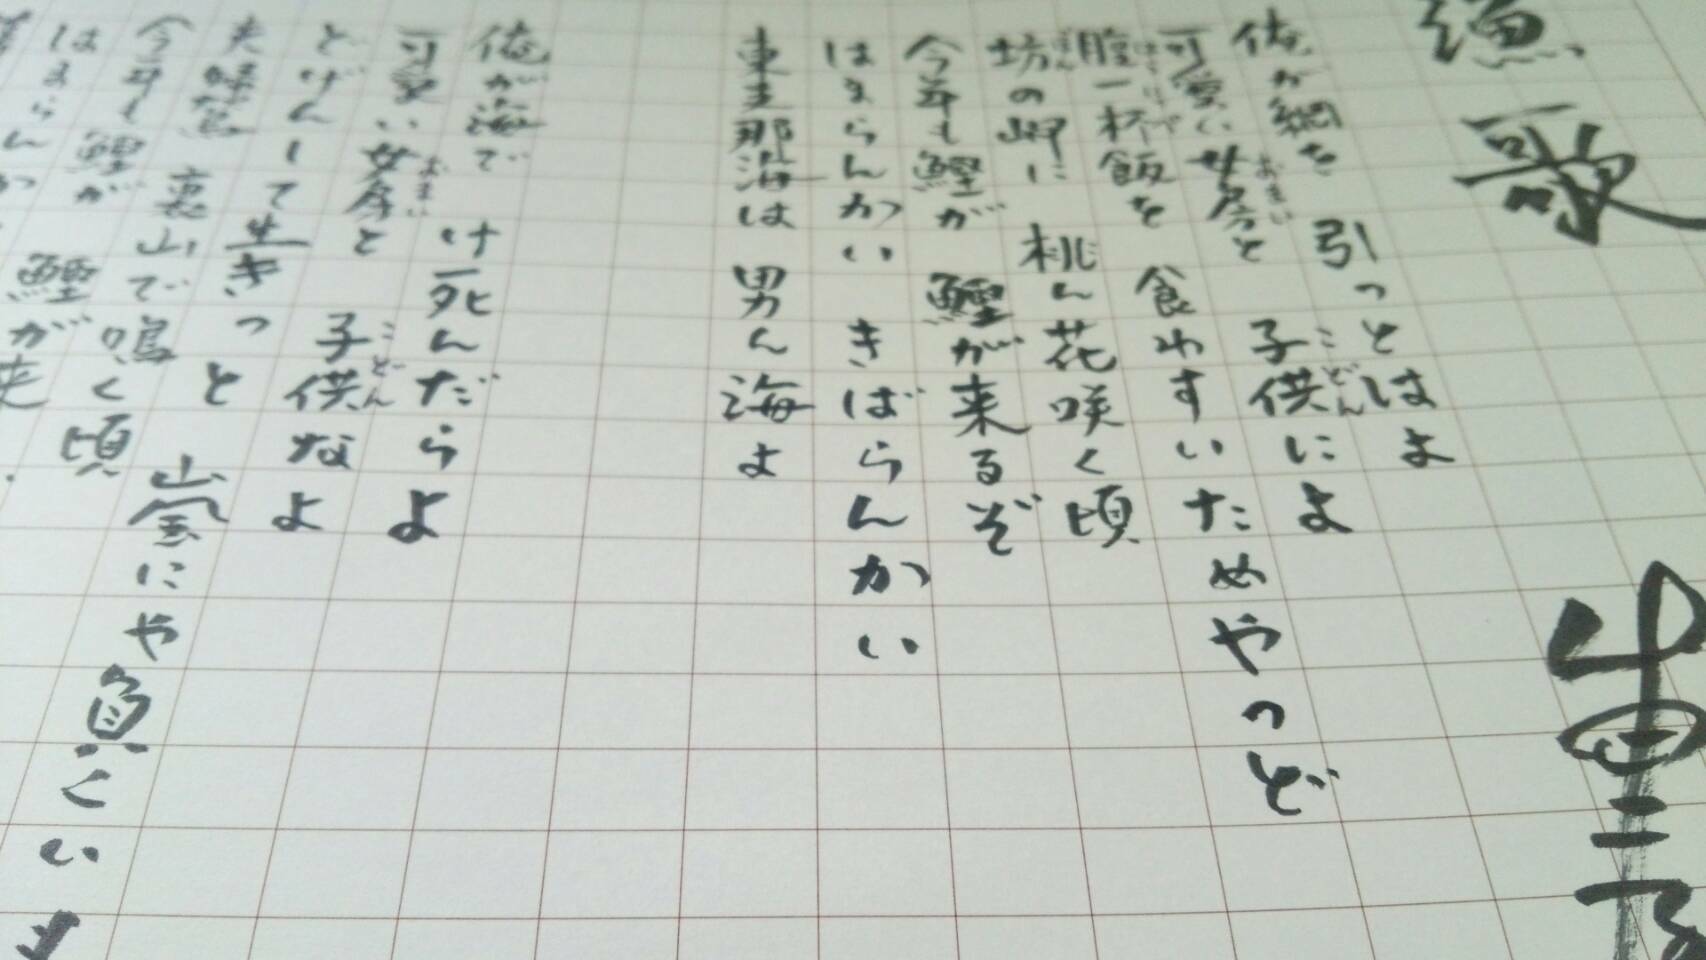 漁歌
山田三
俺が網を 引っとはよ
可愛い女房と 子供によ
腹一杯飯を 食わすいためやっど
坊の岬に 桃ん花咲く頃
今年も鰹が 鰹が来るぞ
はまらんかい きばらんかい
東支那海は 男ん海よ
俺が海で け死んだらよ
可愛い女房と 子供なよ
どげんして生きっと 嵐にや負くいま
夫婦鳶 裏山で鳴く頃
今年も鰹が 鰹が来
はまらんか